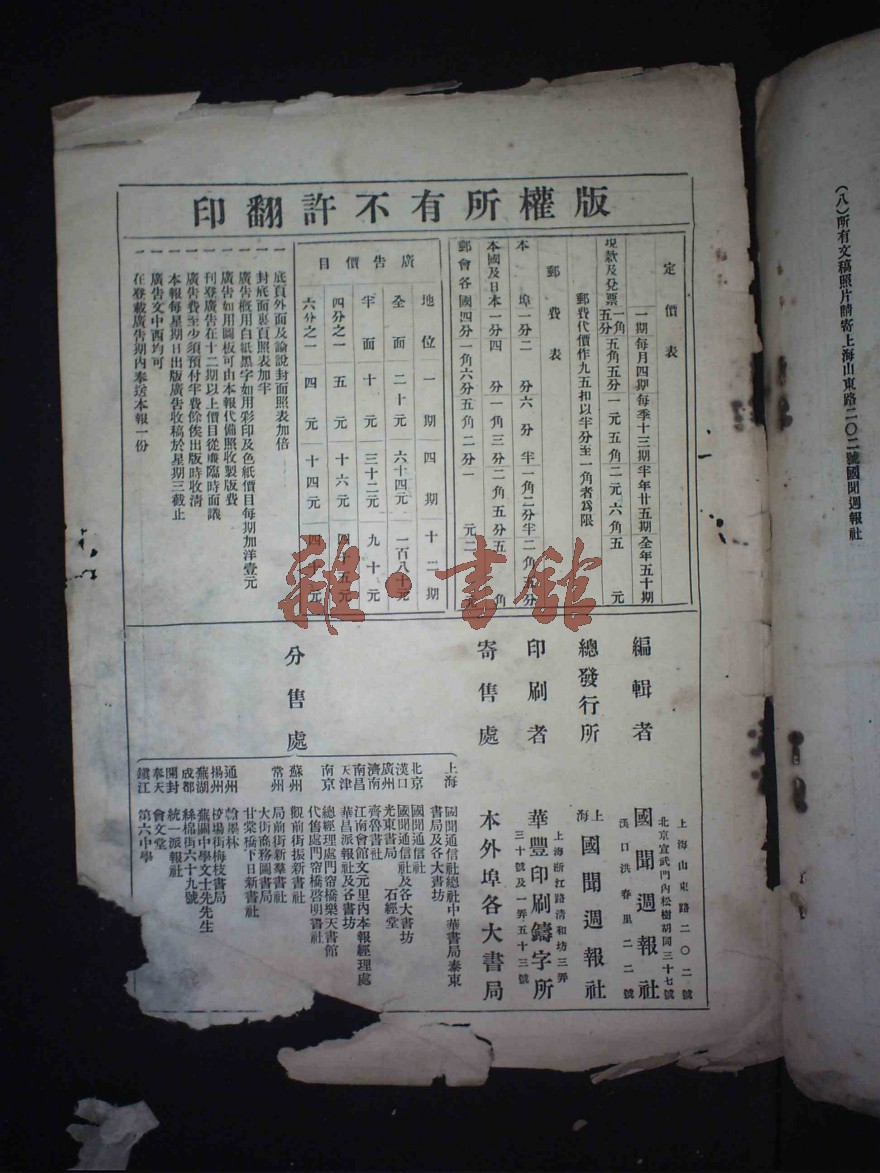 (八)所有文稿照片請寄上海山東路二〇二號國聞週報社
版權所有不許翻印
定價表
一期每月四期每季十三期半年廿五期全年五十期
現款及兌票
五分
一角五角五分一元五角二元六角五元
郵費代價作九五扣以半分至一角者爲限
郵費表
本埠一分二分六分半一角二分半二角五分
本國及日本一分四分一角三分二角五分五角
郵會各國四分一角六分五角二分一元二元
廣告價目
地位一期四期十二期
全面二十元六十四元一百八十元
半面十元三十二元九十元
四分之一五元十六元四十五元
六分之一四元十四元四十元
一 底頁外面及論說封面照表加倍
一 封底面裏頁照表加半
一 廣告概用白紙黑字如用彩印及色紙價目每期加洋壹元
一 廣告如用圖板可由本報代備照收製版費
一 刊登廣告在十二期以上價目從廉臨時面議
一 廣告費至少須預付半費餘俟出版時收清
一 本報每星期日出版廣告收稿於星期三截止
一 廣告文中西均可
一 在登載廣告期內奉送本報一份
編輯者
上海山東路二〇二號
國聞週報社
北京宣武門內松樹胡同三十七號
漢口洪春里二二號
總發行所
上海國聞週報社
印刷者
上海浙江路清和坊三弄
華豐印刷鑄字所
三十號及一弄五十三號
寄售處
本外埠各大書局
分售處
上海 國聞通信社總社中華書局泰東
書局及各大書坊
北京 國聞通信社
漢口 國聞通信社及各大書坊
廣州 光東書局 石經堂
濟南 齊魯書社
南昌 江南會館文元里內本報經理處
天津 華昌派報社及各書坊
南京 總經理處門帘橋樂天書館
代售處門帘橋啓明書社
蘇州 觀前街振新書社
常州 局前街新羣書社
大街商務圖書局
甘棠橋下日新書社
通州 翰墨林
揚州 校場街梅枝書局
蕪湖 蕪關中學文士先先生
成都 絲棉街六十九號
開封 統一派報社
奉天 會文堂
鎮江 第六中學
雜·書館